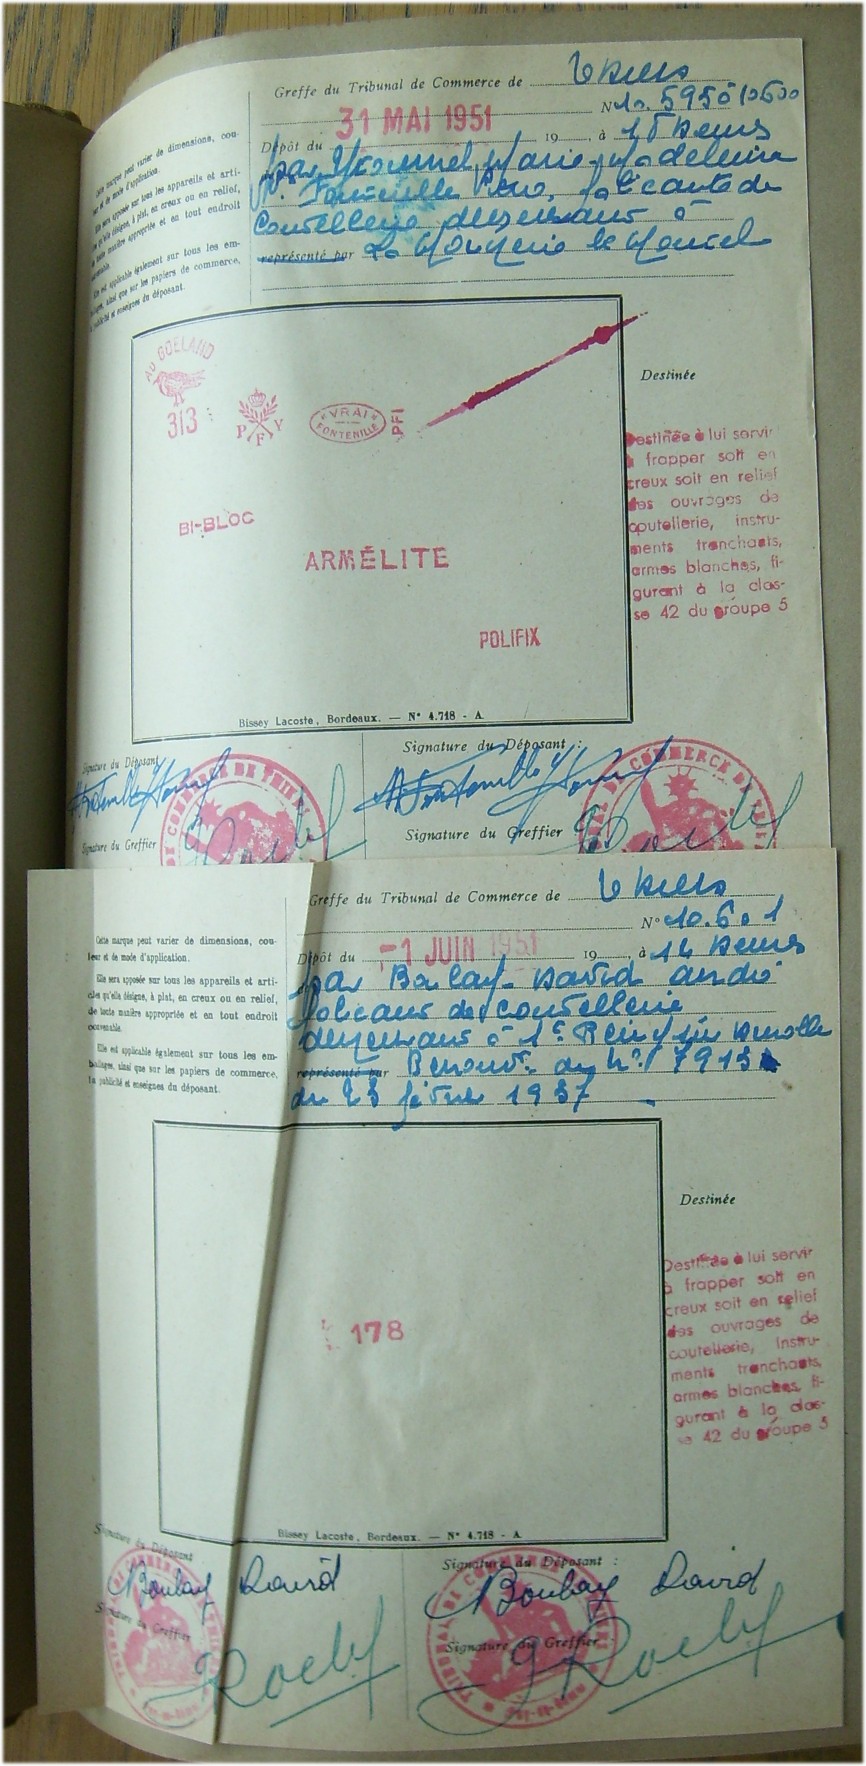 Greffe du Tribunal de Commerce de Thiers
N° 10.595 à 10600
Dépôt du 31 MAI 1951 19 , à 15 heures
Cette marque peut varier de dimensions, cou-
leur et de mode d'application.
Elle sera apposée sur tous les appareils et arti-
cles qu'elle désigne, à plat, en creux ou en relief,
de toute manière appropriée et en tout endroit
convenable.
Elle est applicable également sur tous les em-
ballages, ainsi que sur les papiers de commerce,
la publicité et enseignes du déposant.
par Marie Madeleine
Fontenille fabricante de
Coutellerie demeurant à
représenté par La Monnerie le Montel
AU GOELAND
313
P F Y
VRAI
FONTENILLE
PFI
BI-BLOC
ARMÉLITE
POLIFIX
Destinée
Destinée à lui servir
à frapper soit en
creux soit en relief
des ouvrages de
coutellerie, instru-
ments tranchants,
armes blanches, fi-
gurant à la clas-
se 42 du groupe 5
Bissey Lacoste, Bordeaux. — N° 4.718 - A
Signature du Déposant
Signature du Déposant :
Signature du Greffier
Signature du Greffier
Greffe du Tribunal de Commerce de Thiers
N° 10.601
Dépôt du -1 JUIN 1951 19 , à 14 heures
Cette marque peut varier de dimensions, cou-
leur et de mode d'application.
Elle sera apposée sur tous les appareils et arti-
cles qu'elle désigne, à plat, en creux ou en relief,
de toute manière appropriée et en tout endroit
convenable.
Elle est applicable également sur tous les em-
ballages, ainsi que sur les papiers de commerce,
la publicité et enseignes du déposant.
par Boulay David andré
fabricant de coutellerie
demeurant à St Rémy sur Durolle
représenté par Renouvt du N° 7913
du 23 février 1937
178
Destinée
Destinée à lui servir
à frapper soit en
creux soit en relief
des ouvrages de
coutellerie, instru-
ments tranchants,
armes blanches, fi-
gurant à la clas-
se 42 du groupe 5
Bissey Lacoste, Bordeaux. — N° 4.718 - A
Signature du Déposant
Boulay David
Signature du Greffier
Signature du Déposant :
Boulay David
Signature du Greffier